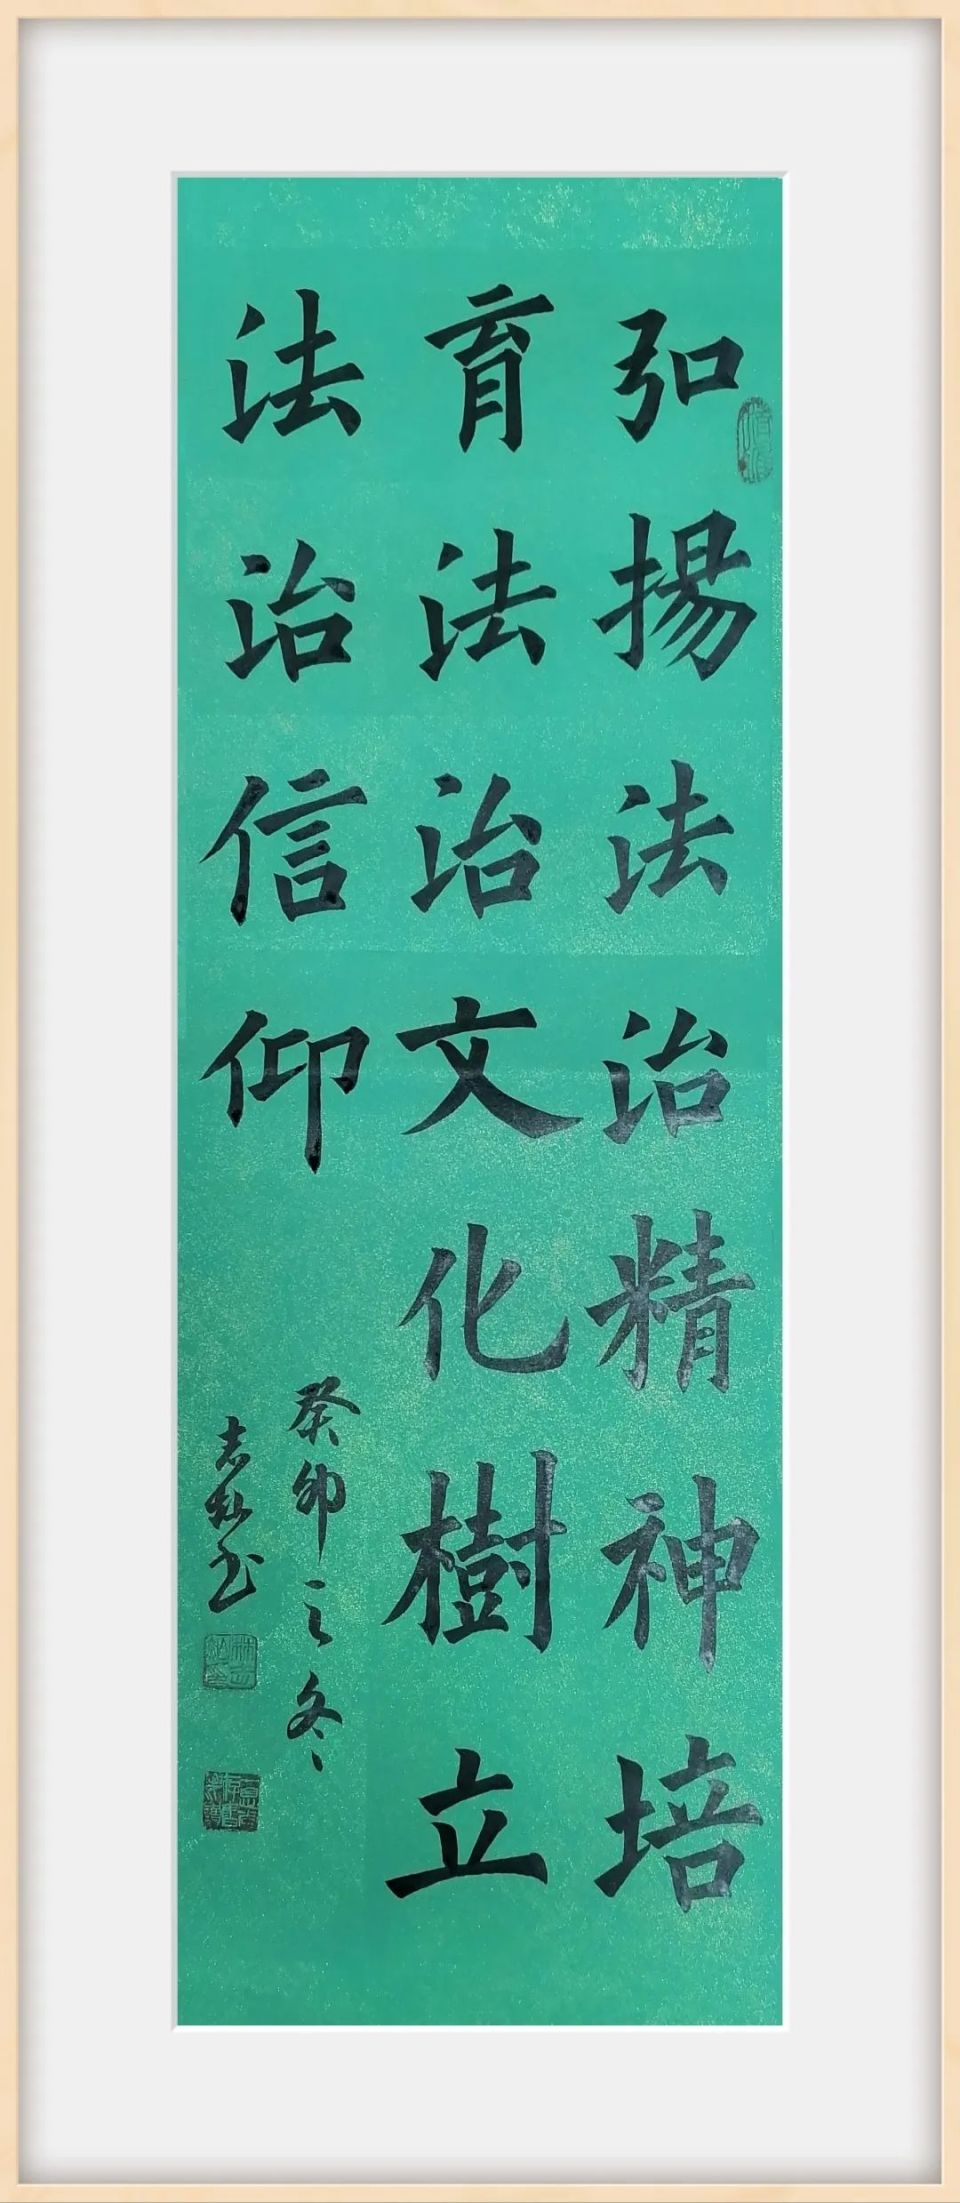 弘揚法治精神培
育法治文化樹立
法治信仰
癸卯之冬
志灿书